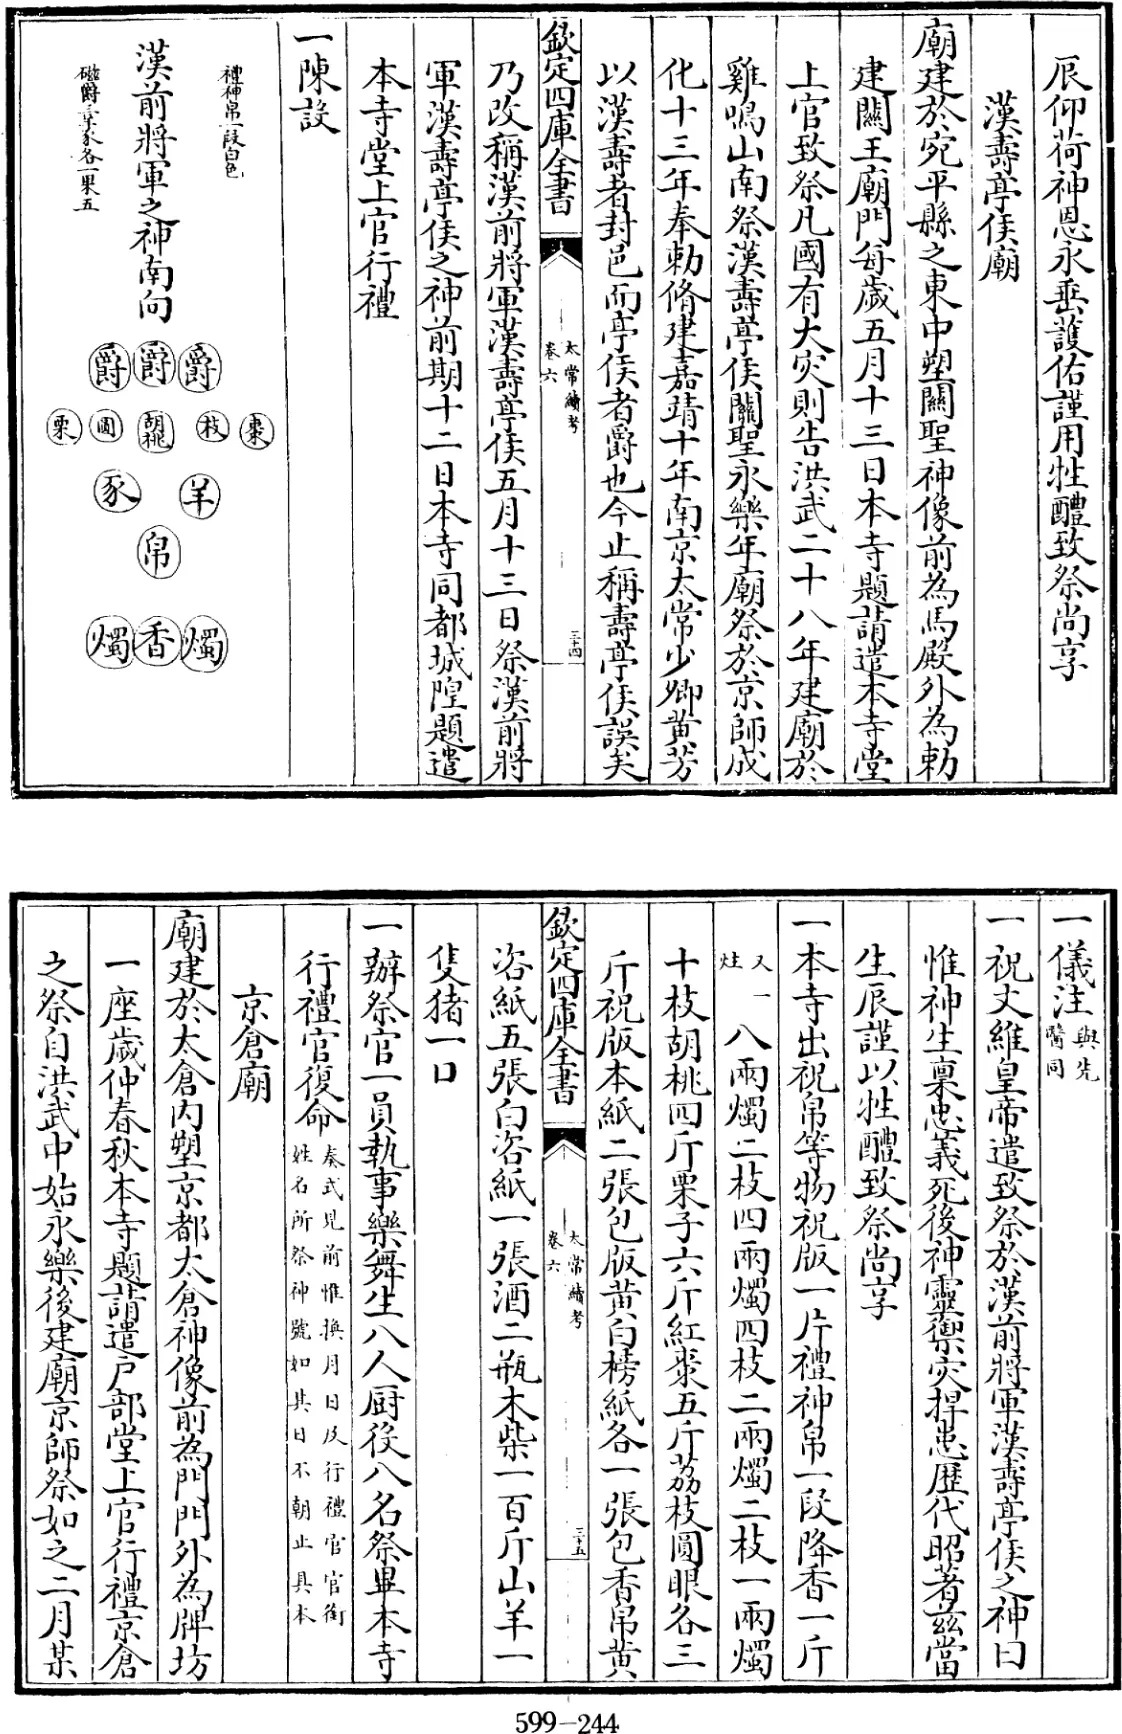 辰仰荷神恩永垂護佑謹用牲醴致祭尚享
漢壽亭侯廟
廟建於宛平縣之東中塑關聖神像前為馬殿外為勅
建關王廟門每歲五月十三日本寺題請遣本寺堂
上官致祭凡國有大灾則告洪武二十八年建廟於
雞鳴山南祭漢壽亭侯關聖永樂年廟祭於京師成
化十三年奉勅脩建嘉靖十年南京太常少卿黄芳
以漢壽者封邑而亭侯者爵也今止稱壽亭侯誤矣
欽定四庫全書
太常續考
卷六
三十四
乃改稱漢前將軍漢壽亭侯五月十三日祭漢前將
軍漢壽亭侯之神前期十二日本寺同都城隍題遣
本寺堂上官行禮
一陳設
禮神帛一段白色
漢前將軍之神南向
磁爵三羊豕各一果五
爵
爵
爵
棗
枝
胡桃
圓
栗
羊
豕
帛
燭
香
燭
一儀注與先
醫同
一祝文維皇帝遣致祭於漢前將軍漢壽亭侯之神曰
惟神生禀忠義死後神靈禦灾捍患歷代昭著兹當
生辰謹以牲醴致祭尚享
一本寺出祝帛等物祝版一片禮神帛一段降香一斤
又一
炷
八兩燭二枝四兩燭四枝二兩燭二枝一兩燭
十枝胡桃四斤栗子六斤紅棗五斤荔枝圓眼各三
斤祝版本紙二張包版黄白榜紙各一張包香帛黄
欽定四庫全書
太常續考
卷六
三十五
咨紙五張白咨紙一張酒二瓶木柴一百斤山羊一
隻猪一口
一辦祭官一員執事樂舞生八人厨役八名祭畢本寺
行禮官復命奏式見前惟換月日及行禮官官銜
姓名所祭神號如其日不朝止具本
京倉廟
廟建於太倉内塑京都太倉神像前為門門外為牌坊
一座歲仲春秋本寺題請遣户部堂上官行禮京倉
之祭自洪武中始永樂後建廟京師祭如之二月某
599-244